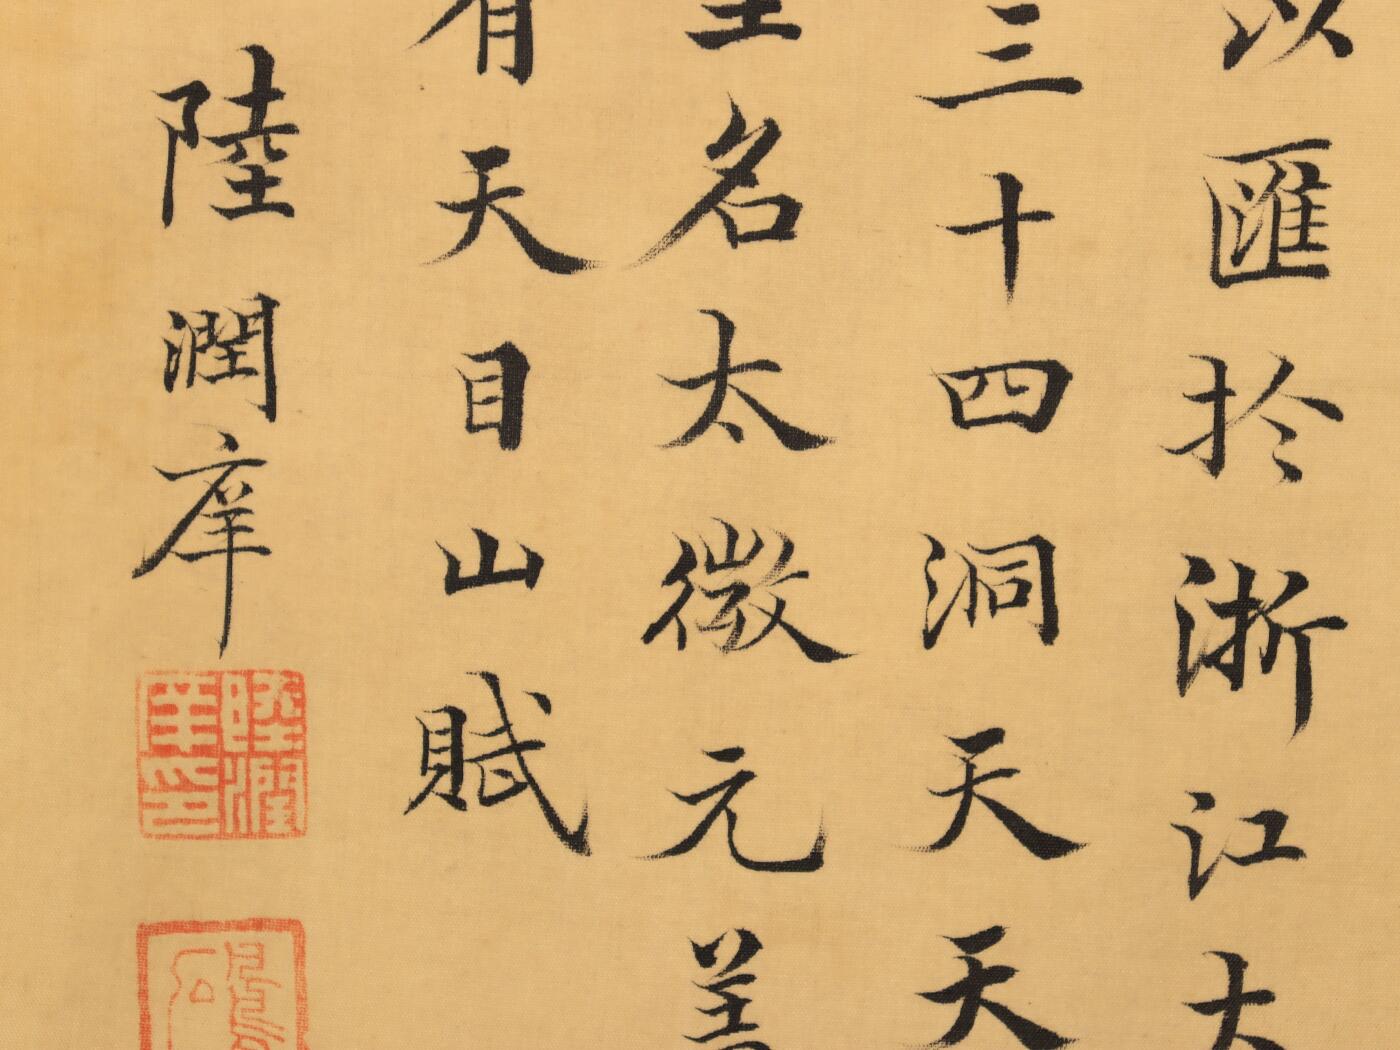 以匯於浙江大
三十四洞天天
名太微元蓋
有天目山賦
陸潤庠
陸潤庠印